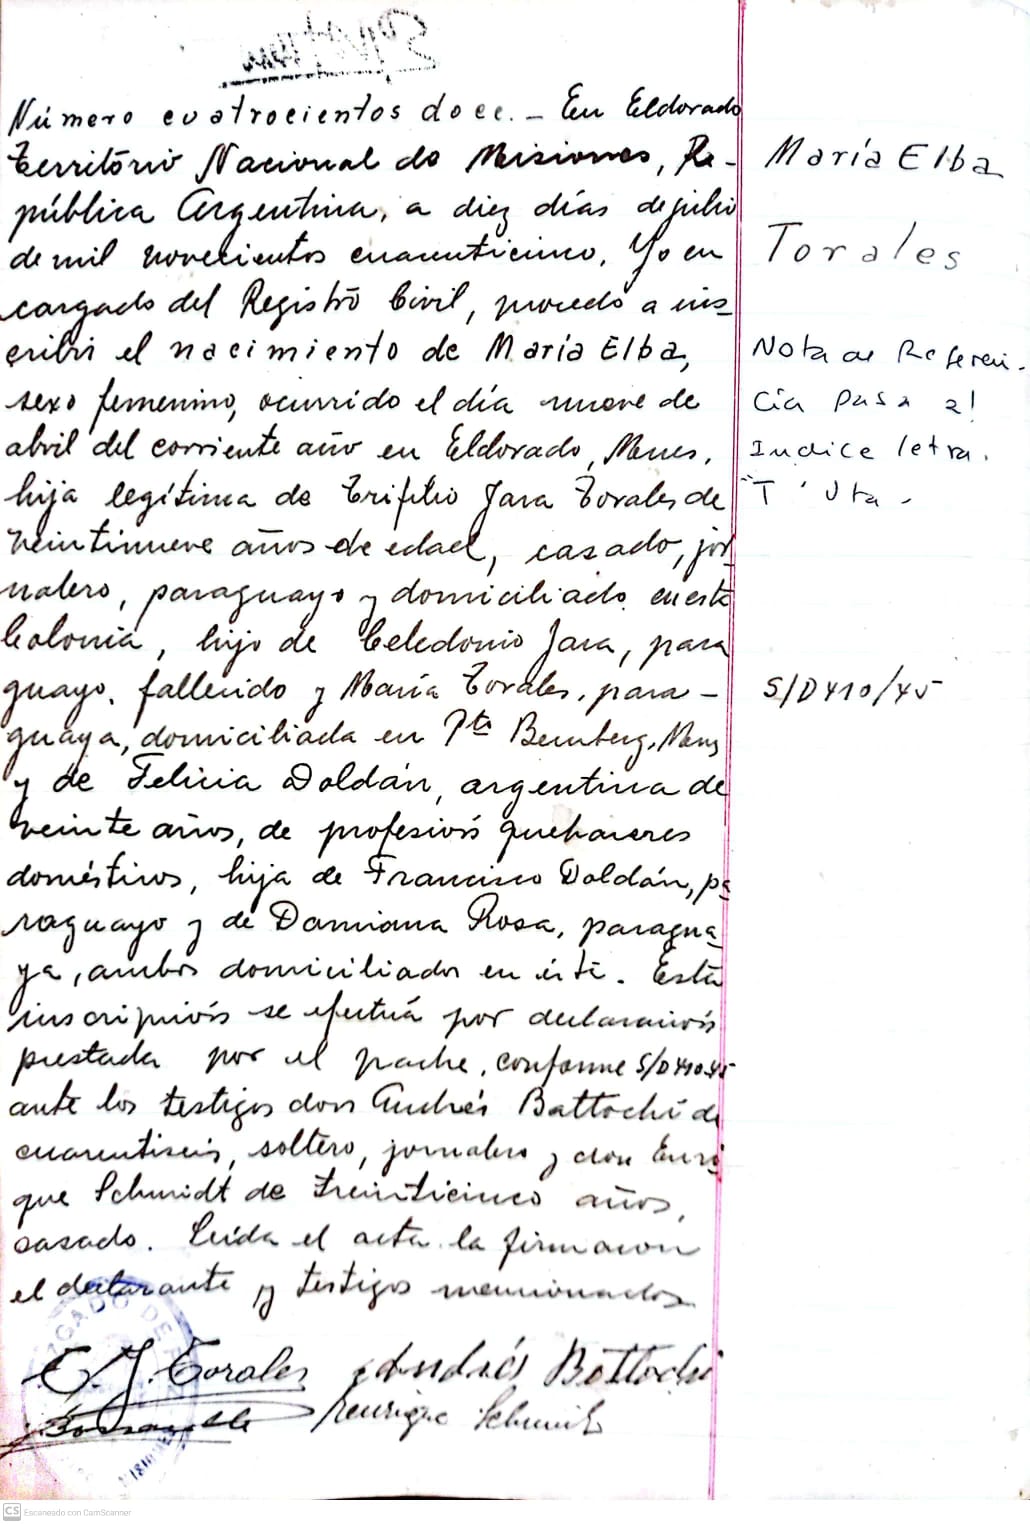 Número cuatrocientos doce. - En Eldorado
Territorio Nacional de Misiones, Re-
pública Argentina, a diez días de julio
de mil novecientos cuarenticinco, Yo en
cargado del Registro Civil, procedo a ins-
cribir el nacimiento de María Elba,
sexo femenino, ocurrido el día nueve de
abril del corriente año en Eldorado, Mnes,
hija legítima de Trifilio Jara Torales de
veintinueve años de edad, casado, jor-
nalero, paraguayo y domiciliado en esta
Colonia, hijo de Celedonio Jara, para
guayo, fallecido y María Torales, para-
guaya, domiciliada en Pto Bemberg, Mnes
y de Felicia Doldán, argentina de
veinte años, de profesión quehaceres
domésticos, hija de Francisco Doldán, pa-
raguayo y de Damiana Rosa, paragua-
ya, ambos domiciliados en ésta. Esta
inscripción se efectúa por declaración
prestada por el padre, conforme S/D 410-45
ante los testigos don Andrés Battochi de
cuarentiseis, soltero, jornalero y don Enri-
que Schmidt de treinticinco años,
casado. Leída el acta la firmaron
el declarante y testigos mencionados
María Elba
Torales
Nota de Referen-
cia pasa al
Indice letra.
"T" Vta.
S/D 410/45
JUZGADO DE PAZ
MISIONES
C. J. Torales Andrés Battochi
Henrique Schmidt
CS Escaneado con CamScanner